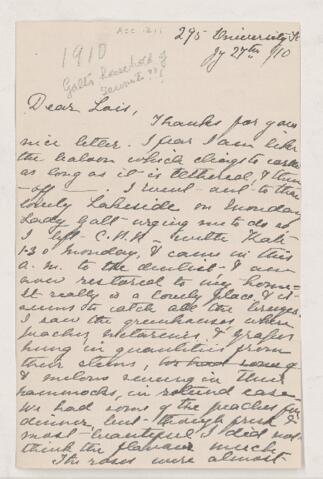 ACC. 1211
295 University St
Jy 27th /10
1910
Galt's household of
servants ??!
Dear Lois,
Thanks for your
nice letter. I fear I am like
the baloon which clings to earth
as long as it is tethered, & then
off I went out to the
lovely Lakeside on Monday
Lady Galt urging me to do so
I left C.P.R. with Kate
1.30 Monday, & came in this
a.m. to the dentist. I am
now restored to my home
It really is a lovely place & it
seems to catch all the breezes
I saw the greenhouses, where
peaches nectarines & grapes
hung in quantities from
their stems,
& melons swung in their
hammocks, in rotund ease
We had some of the peaches for
dinner, but though fresh &
most beautiful I did not
think the flavour much.
The roses were almost